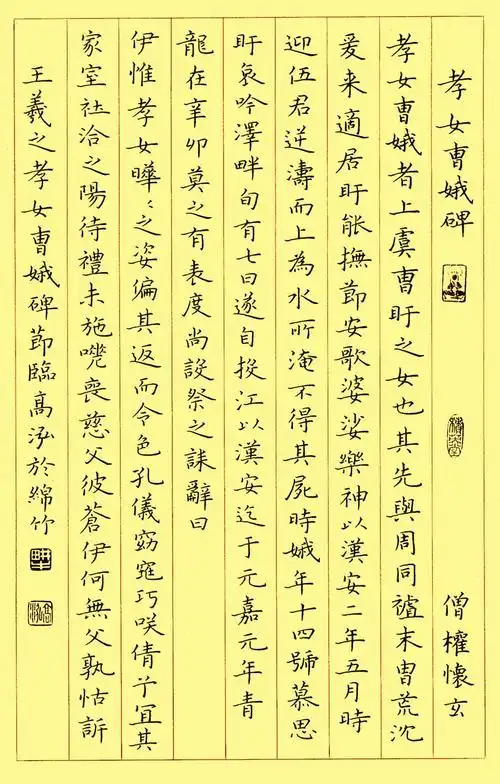 孝女曹娥碑 僧權懷玄
孝女曹娥者上虞曹盱之女也其先與周同禩末胄荒沈
爰来適居盱能撫節安歌婆娑樂神以漢安二年五月時
迎伍君逆濤而上為水所淹不得其屍時娥年十四號慕思
盱哀吟澤畔旬有七日遂自投江以漢安迄于元嘉元年青
龍在辛卯莫之有表度尚設祭之誄辭曰
伊惟孝女曄〻之姿偏其返而令色孔儀窈窕巧咲倩兮宜其
家室在洽之陽待禮未施嗟喪慈父彼蒼伊何無父孰怙訴
王羲之孝女曹娥碑節臨高泓於綿竹